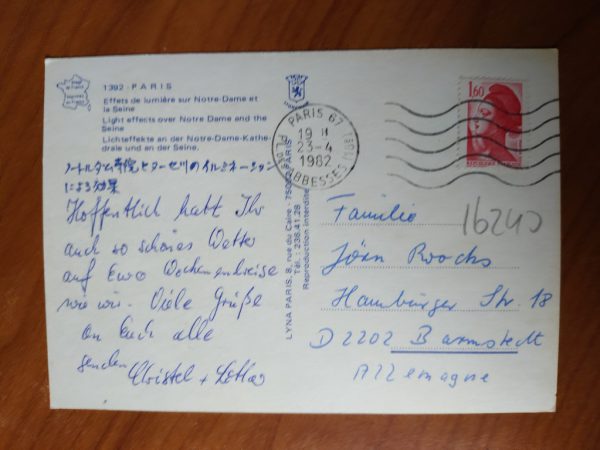 1392 - PARIS
Effets de lumière sur Notre-Dame et
la Seine
Light effects over Notre Dame and the
Seine
Lichteffekte an der Notre-Dame-Kathe-
drale und an der Seine.
ノートルダム寺院とセーヌ川のイルミネーション
による効果
Hoffentlich habt Ihr
auch so schönes Wetter
auf Eure Wochenendreise
wie wir. Viele Grüße
an Euch alle
senden Christel +
LYNA PARIS, 8, rue du Caire - 75002 PARIS
Tél.: 236.41.28
Reproduction interdite
PARIS 67
19 H
23-4
1982
PL. DES ABBESSES (18E)
1,60
REPUBLIQUE FRANCAISE
16240
Familie
Jörn
Hamburger Str. 18
D 2202 Barmstedt
Allemagne